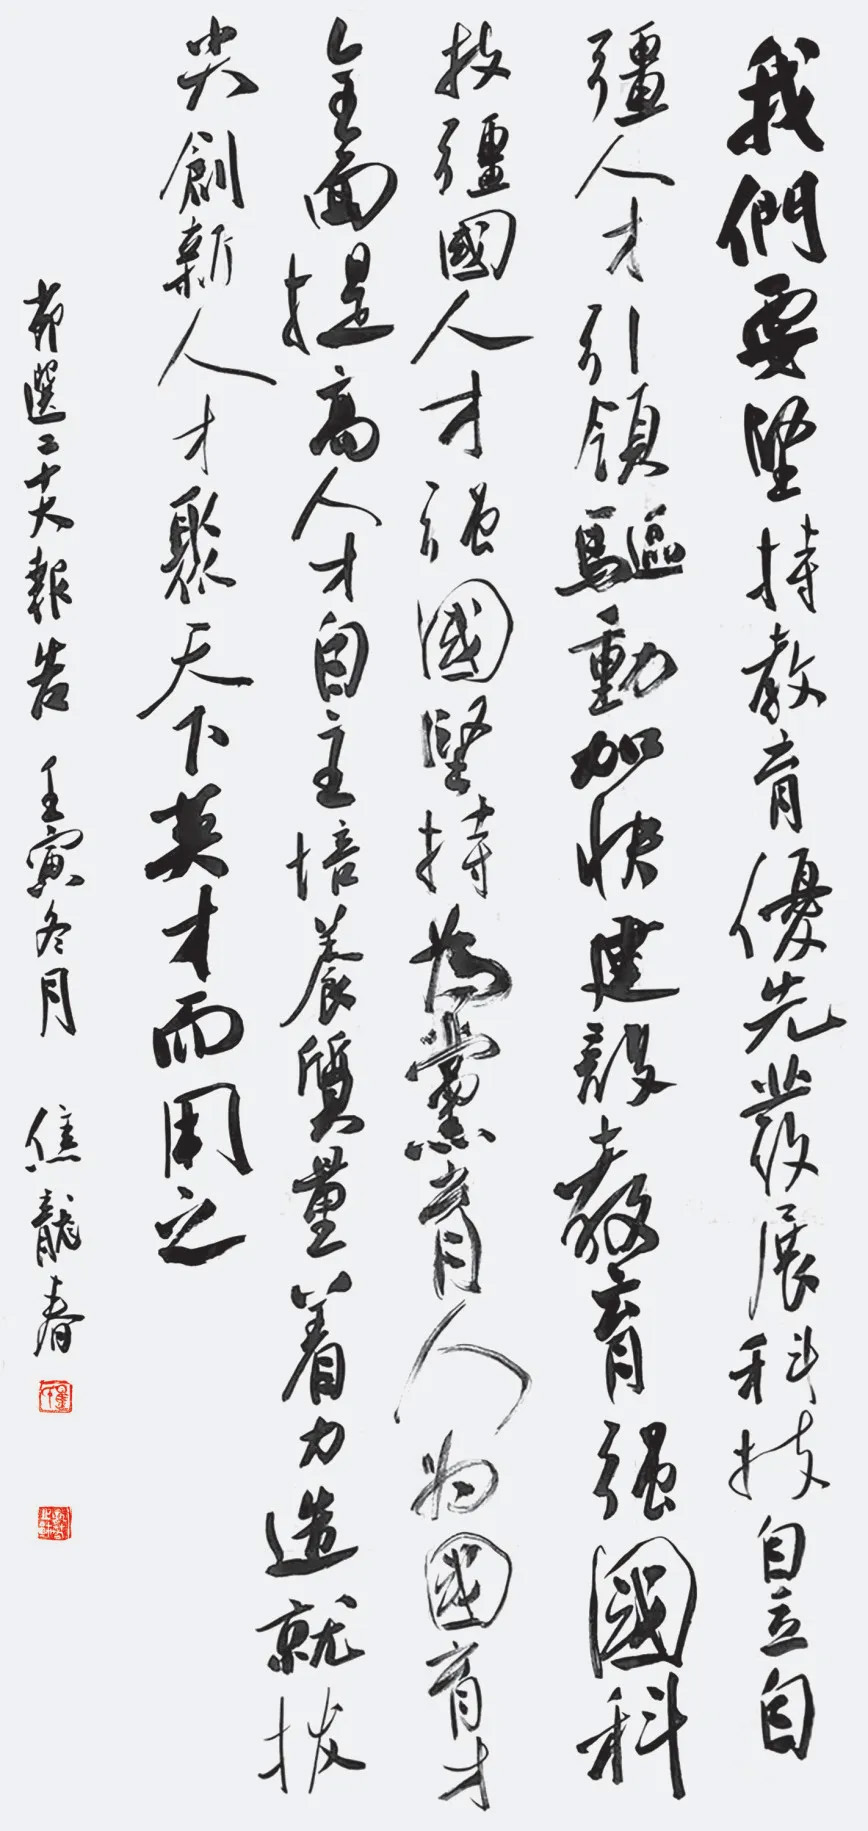 我們要堅持教育優先發展科技自立自
彊人才引領驅動加快建設教育强國科
技彊國人才强國堅持為黨育人为國育才
全面提高人才自主培養質量着力造就拔
尖創新人才聚天下英才而用之
節選二十大報告 壬寅冬月 焦龍春